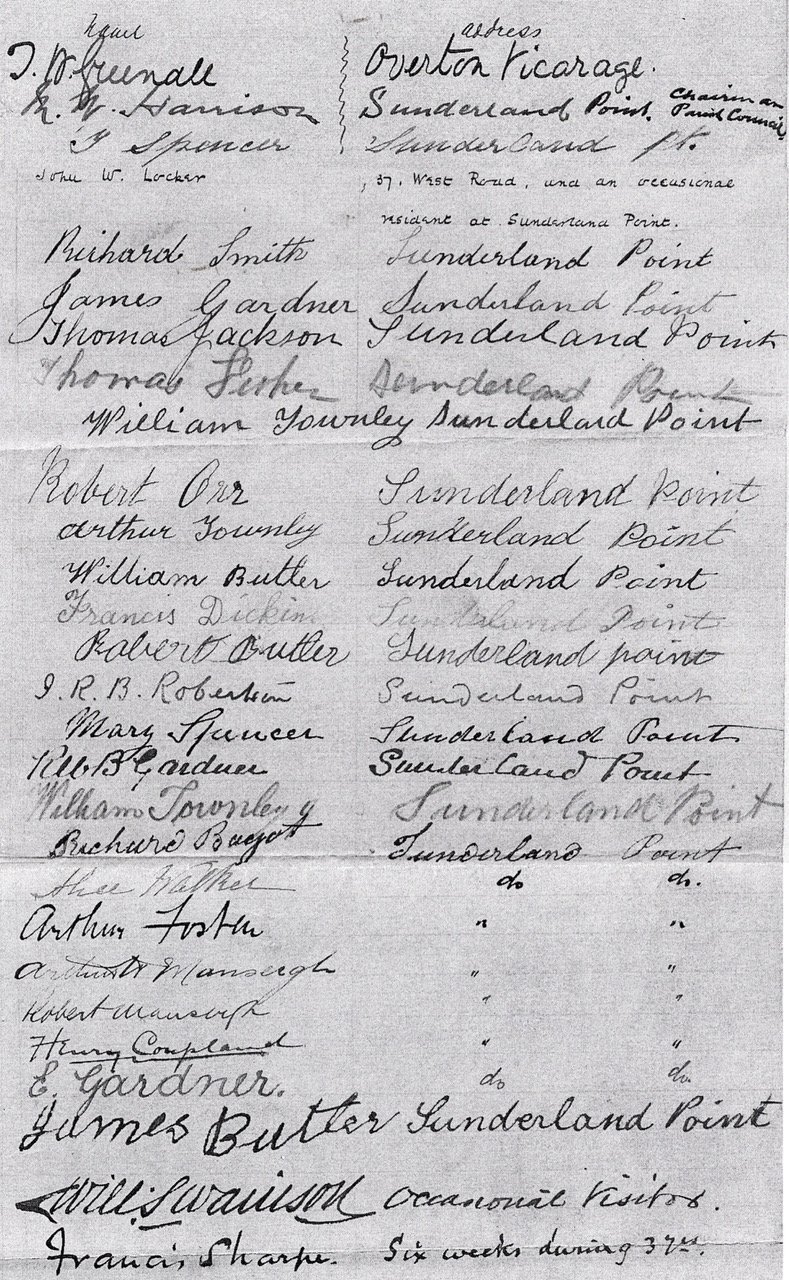 Name address
T. W. Greenall Overton Vicarage.
R. W. Harrison Sunderland Point. Chairman Parish Council
T Spencer Sunderland Pt.
John W. Locker , 37. West Road, and an occasional
resident at Sunderland Point.
Richard Smith Sunderland Point
James Gardner Sunderland Point
Thomas Jackson Sunderland Point
Thomas Fisher Sunderland Point
William Townley Sunderland Point
Robert Orr Sunderland Point
Arthur Townley Sunderland Point
William Butler Sunderland Point
Francis Dickin Sunderland Point
Robert Butler Sunderland point
J. R. B. Robertson Sunderland Point
Mary Spencer Sunderland Point
B Gardner Sunderland Point
William Townley Sunderland Point
Richard Bagot Sunderland Point
Alice Walker do do.
Arthur Foster " "
Mansergh " "
Robert Mansergh " "
Henry Coupland " "
E. Gardner. do do.
James Butler Sunderland Point
Will: Swainson occasional Visitor.
Francis Sharpe. Six weeks during 37 yrs.